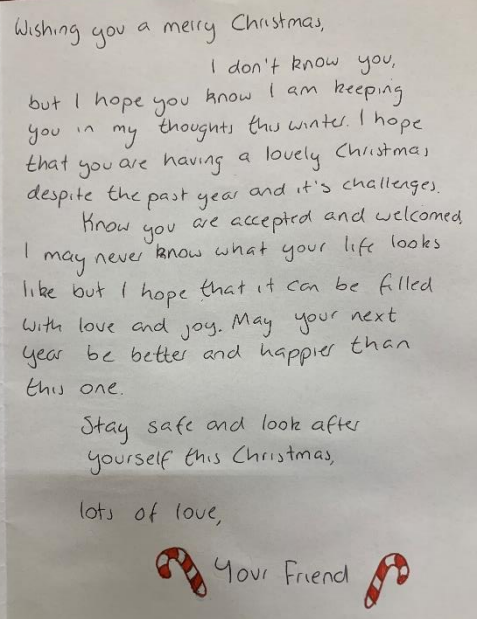 Wishing you a merry Christmas,
I don't know you,
but I hope you know I am keeping
you in my thoughts this winter. I hope
that you are having a lovely Christmas
despite the past year and it's challenges.
Know you are accepted and welcomed.
I may never know what your life looks
like but I hope that it can be filled
with love and joy. May your next
year be better and happier than
this one.
Stay safe and look after
yourself this Christmas,
lots of love,
Your Friend